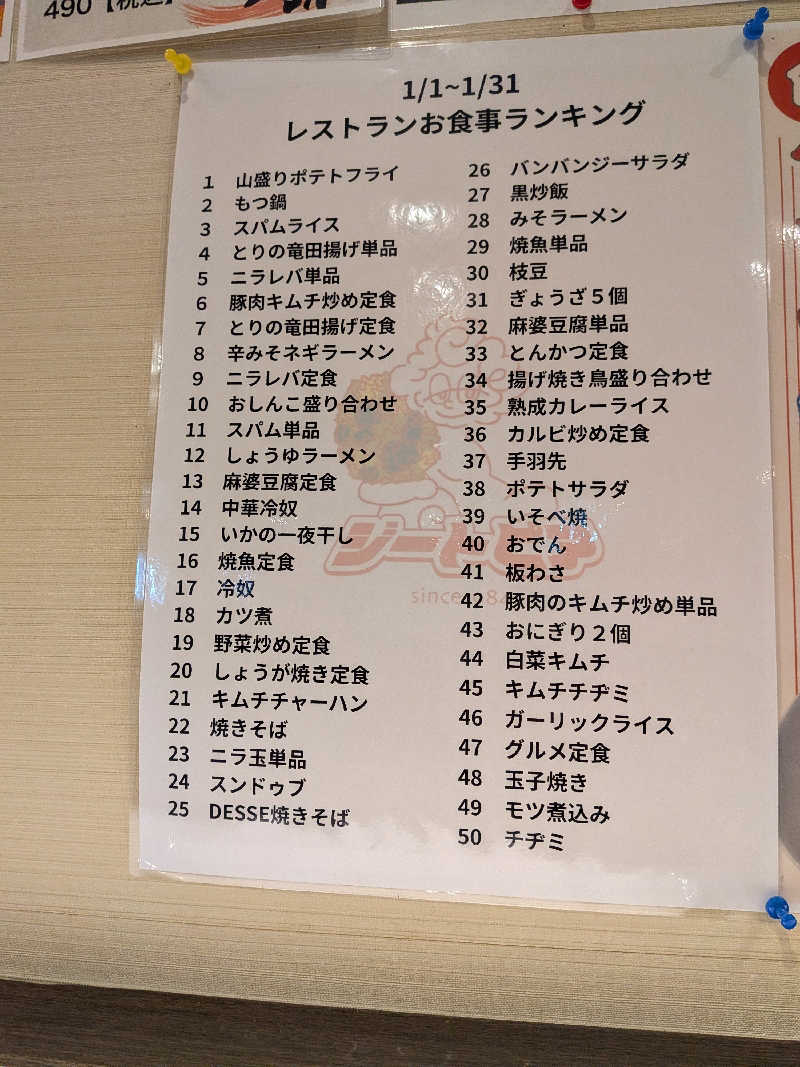 490【税込】
1/1~1/31
レストランお食事ランキング
1 山盛りポテトフライ
2 もつ鍋
3 スパムライス
4 とりの竜田揚げ単品
5 ニラレバ単品
6 豚肉キムチ炒め定食
7 とりの竜田揚げ定食
8 辛みそネギラーメン
9 ニラレバ定食
10 おしんこ盛り合わせ
11 スパム単品
12 しょうゆラーメン
13 麻婆豆腐定食
14 中華冷奴
15 いかの一夜干し
16 焼魚定食
17 冷奴
18 カツ煮
19 野菜炒め定食
20 しょうが焼き定食
21 キムチチャーハン
22 焼きそば
23 ニラ玉単品
24 スンドゥブ
25 DESSE焼きそば
26 バンバンジーサラダ
27 黒炒飯
28 みそラーメン
29 焼魚単品
30 枝豆
31 ぎょうざ５個
32 麻婆豆腐単品
33 とんかつ定食
34 揚げ焼き鳥盛り合わせ
35 熟成カレーライス
36 カルビ炒め定食
37 手羽先
38 ポテトサラダ
39 いそべ焼
40 おでん
41 板わさ
42 豚肉のキムチ炒め単品
43 おにぎり２個
44 白菜キムチ
45 キムチチヂミ
46 ガーリックライス
47 グルメ定食
48 玉子焼き
49 モツ煮込み
50 チヂミ
since